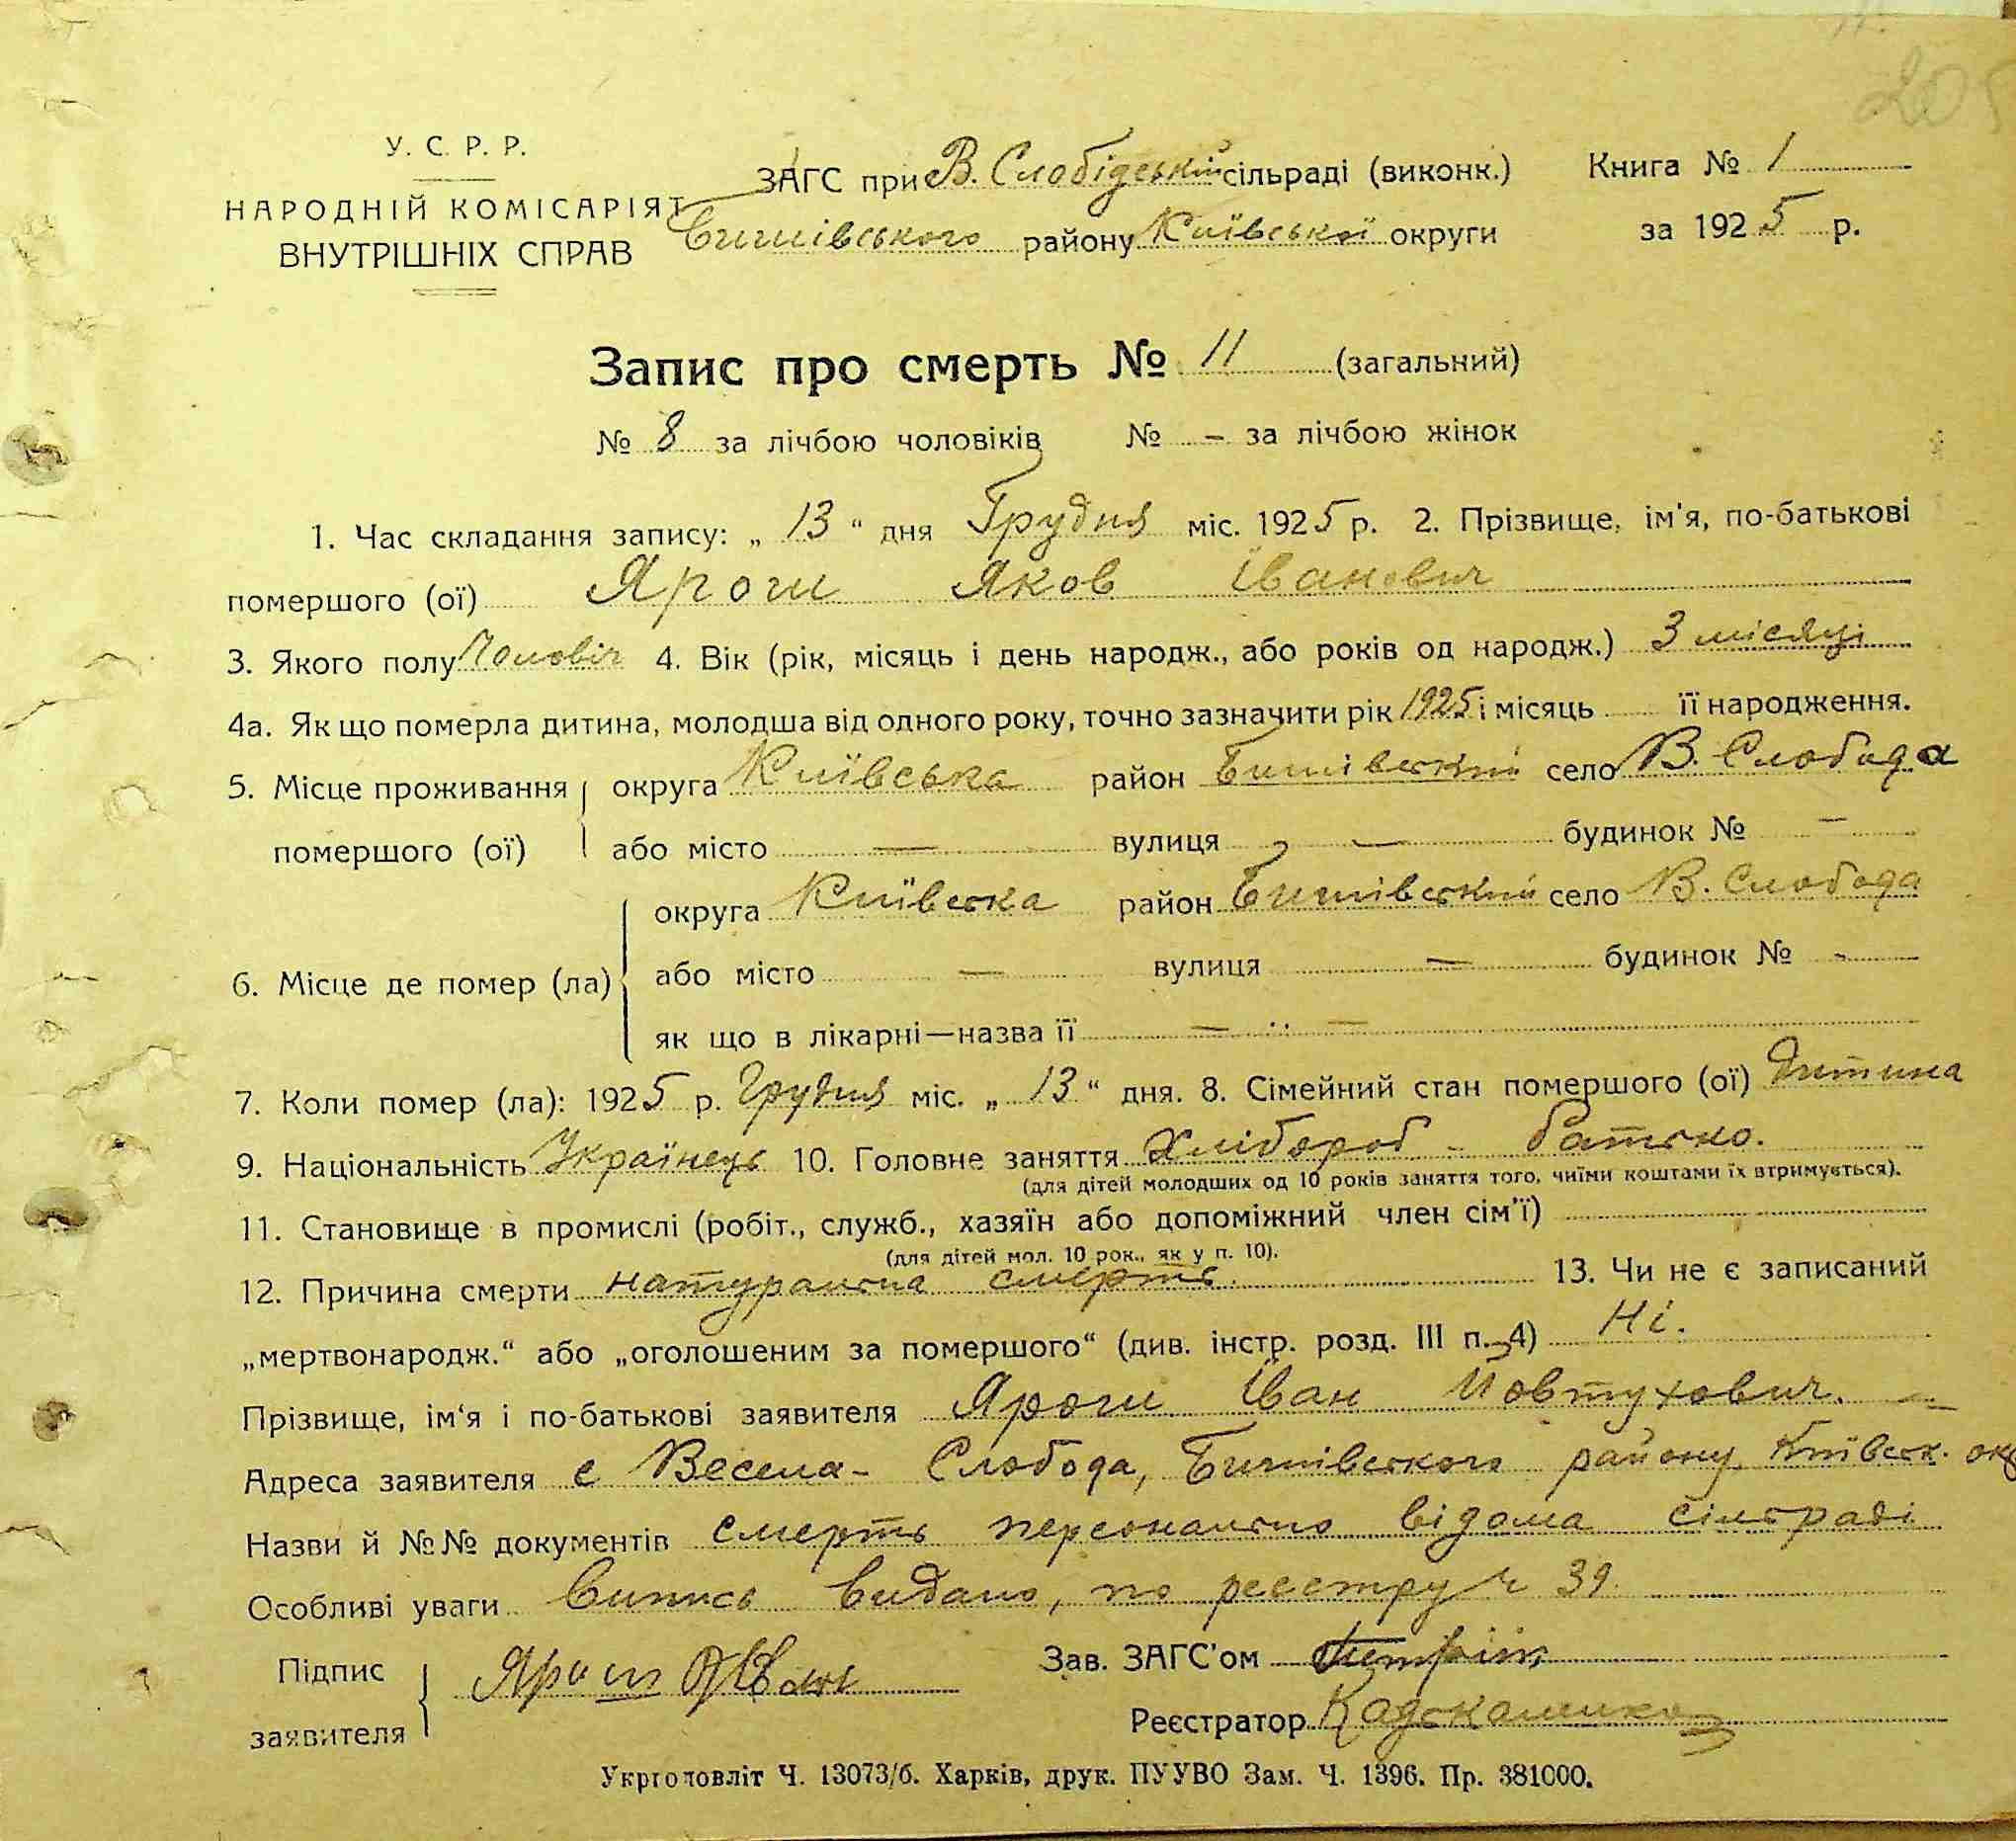 205
У. С. Р. Р.
НАРОДНІЙ КОМІСАРІЯТ
ВНУТРІШНІХ СПРАВ
ЗАГС при В. Слобідській сільраді (виконк.)
Бишівського району Київської округи
Книга № 1
за 1925 р.
Запис про смерть № 11 (загальний)
№ 8 за лічбою чоловіків № - за лічбою жінок
1. Час складання запису: „ 13 “ дня Грудня міс. 1925 р. 2. Прізвище, ім'я, по-батькові
помершого (ої) Ярош Яков Іванович
3. Якого полу Чоловіч 4. Вік (рік, місяць і день народж., або років од народж.) 3 місяці
4а. Як що померла дитина, молодша від одного року, точно зазначити рік 1925 і місяць її народження.
5. Місце проживання помершого (ої) округа Київська район Бишівський село В. Слобода
або місто — вулиця — будинок № —
6. Місце де помер (ла) округа Київська район Бишівський село В. Слобода
або місто — вулиця — будинок № -
як що в лікарні—назва її — ·· —
7. Коли помер (ла): 1925 р. Грудня міс. „ 13 “ дня. 8. Сімейний стан помершого (ої) дитина
9. Національність Українець 10. Головне заняття Хлібороб - батько.
(для дітей молодших од 10 років заняття того, чиїми коштами їх втримується).
11. Становище в промислі (робіт., служб., хазяїн або допоміжний член сім'ї)
(для дітей мол. 10 рок., як у п. 10).
12. Причина смерти натуральна смерть. 13. Чи не є записаний
„мертвонародж.“ або „оголошеним за помершого“ (див. інстр. розд. III п. 4) Ні.
Прізвище, ім'я і по-батькові заявителя Ярош Іван Йовтухович. —
Адреса заявителя с Весела - Слобода, Бишівського району Київськ. окр
Назви й №№ документів смерть персонально відома сільраді
Особливі уваги Випись видано, по реєстру ч 39.
Підпис заявителя Ярош Іван
Зав. ЗАГС'ом
Реєстратор
Укрголовліт Ч. 13073/б. Харків, друк. ПУУВО Зам. Ч. 1396. Пр. 381000.